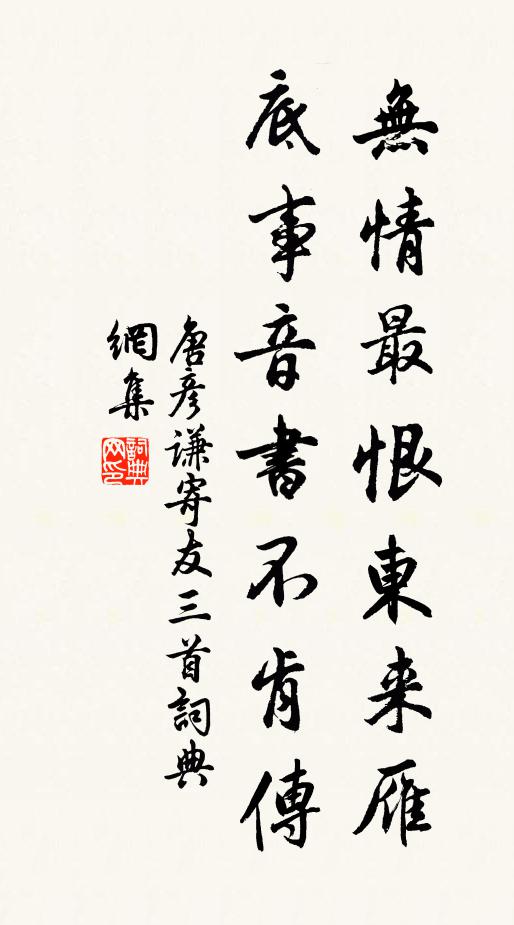 無情最恨東来雁
底事音書不肯傳
唐彦謙寄友三首詞典
網集
詞典
网印